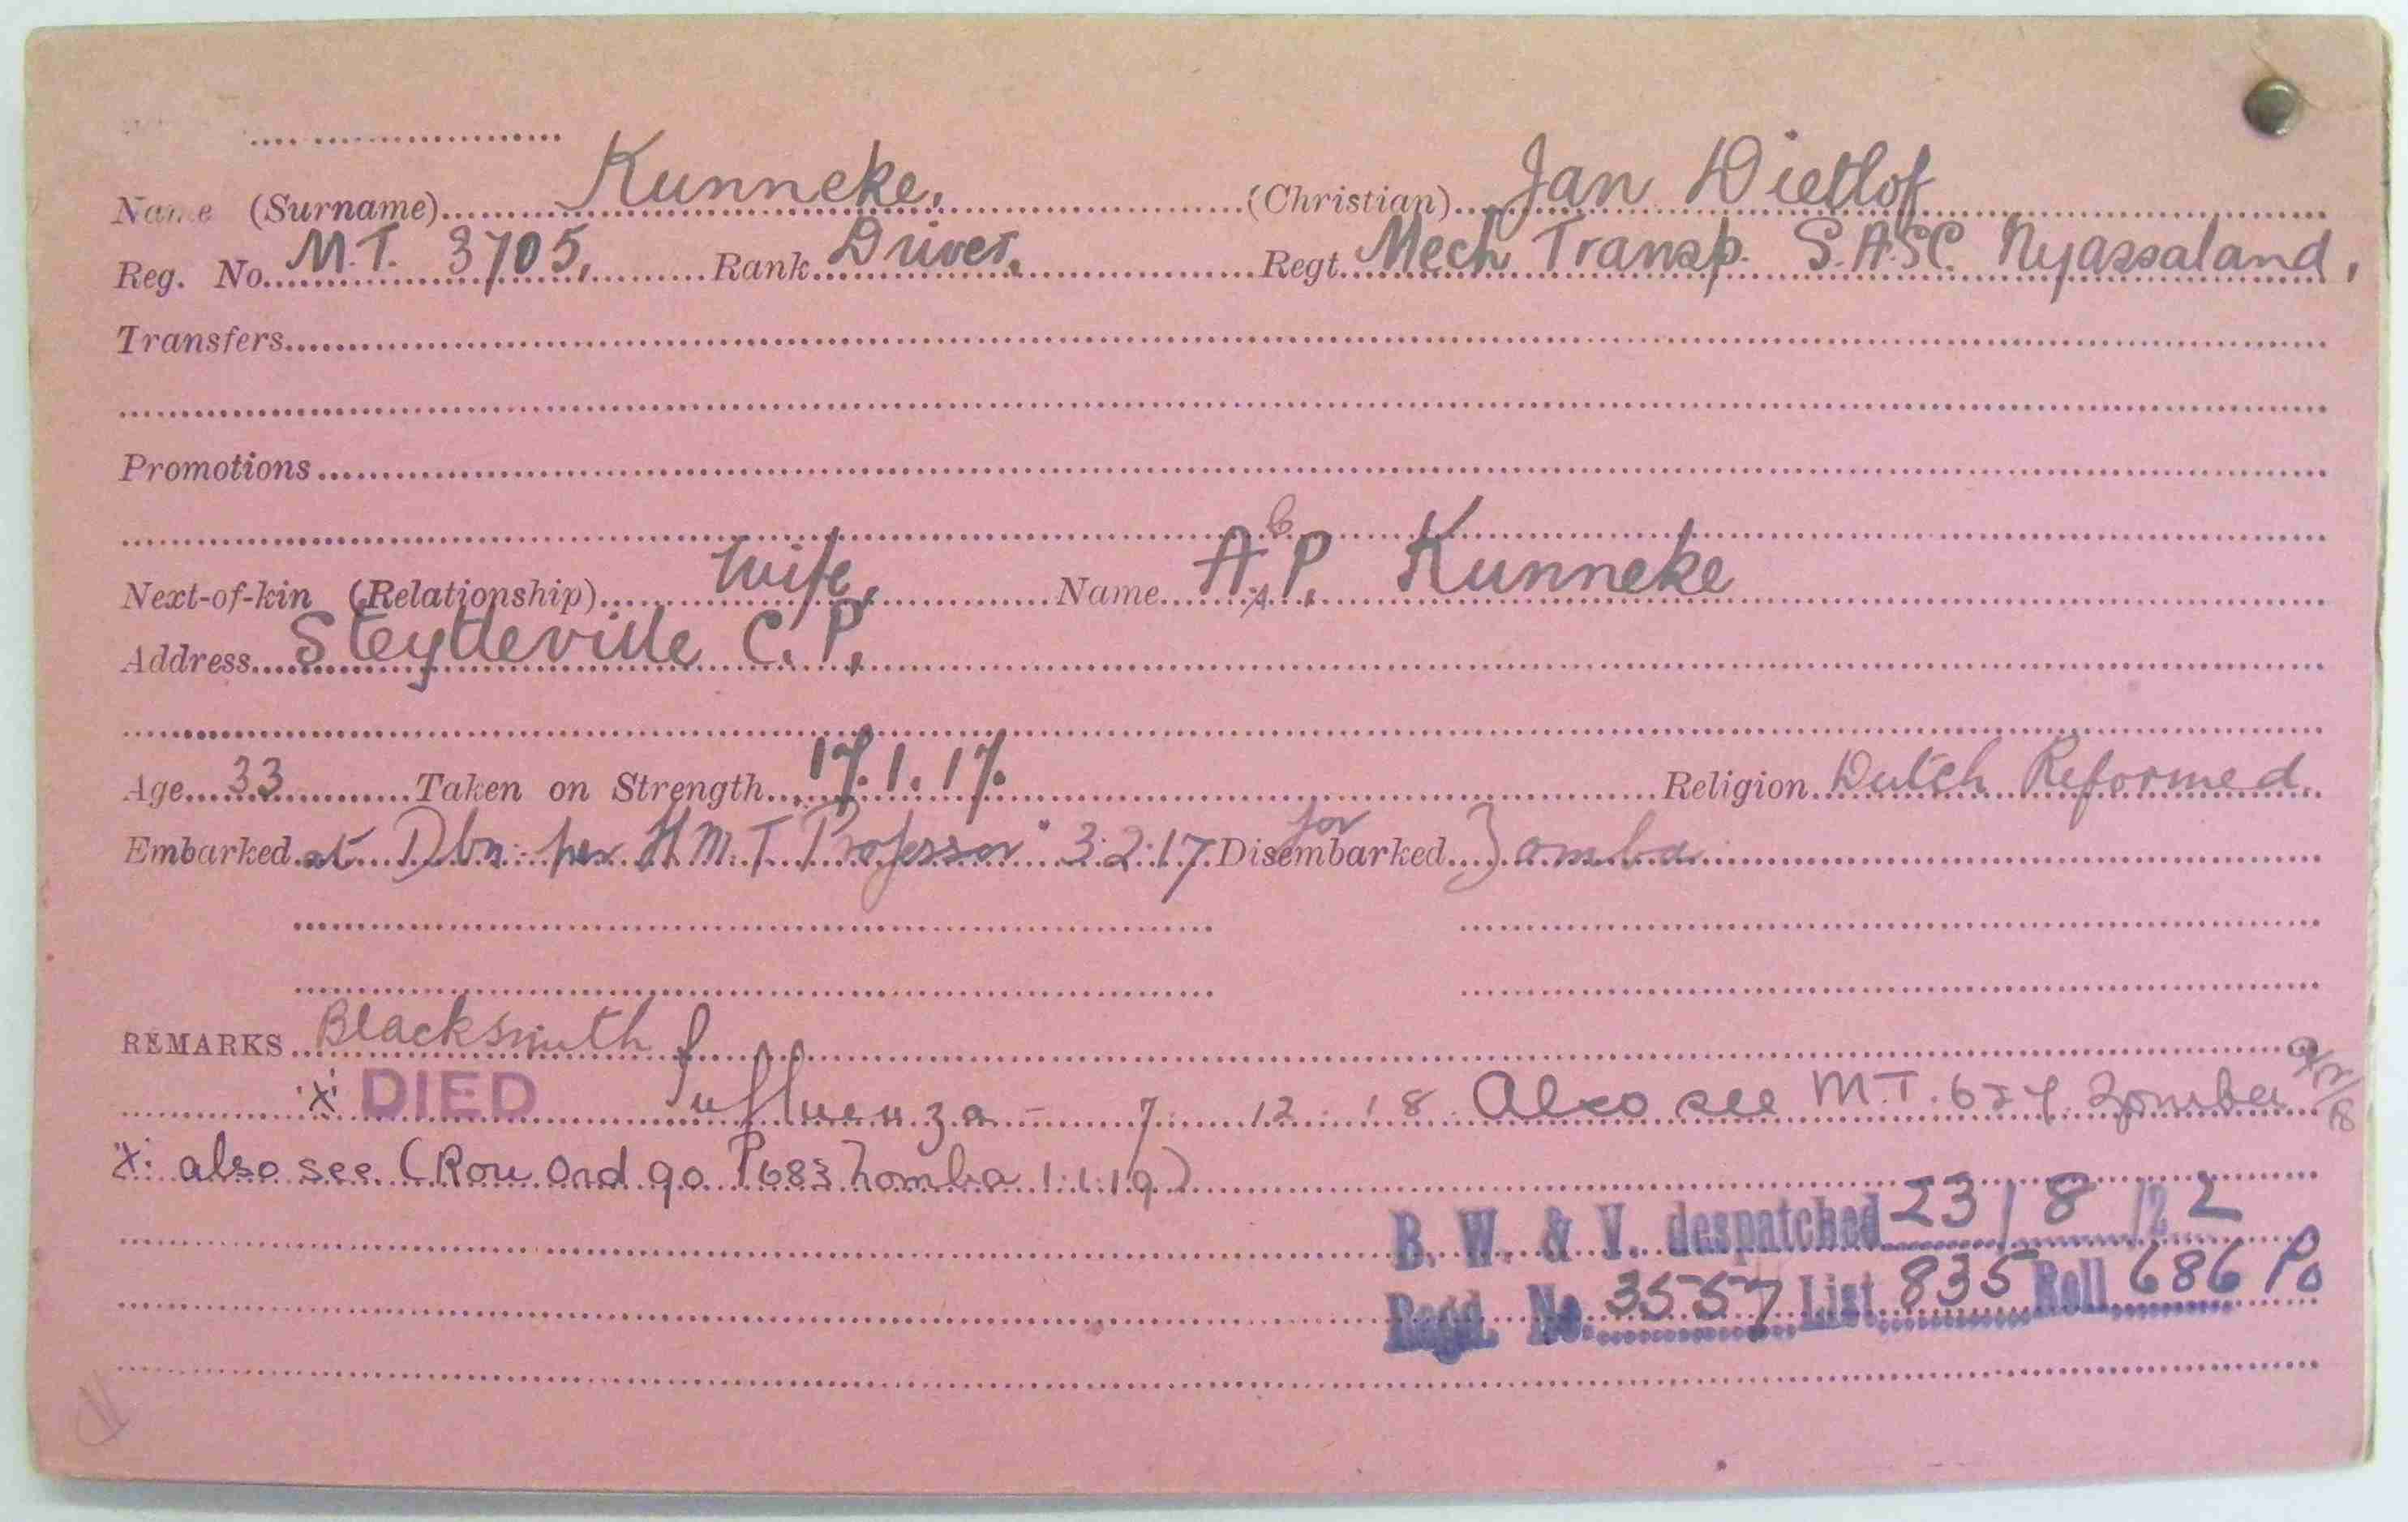 Name (Surname) Kunneke, (Christian) Jan Dietlof
Reg. No. M.T. 3705, Rank Driver, Regt. Mech Transp. S.A.S.C. Nyassaland,
Transfers
Promotions
C
Next-of-kin (Relationship) Wife, Name A.P. Kunneke
Address Steytleville C.P.
Age 33 Taken on Strength 17.1.17. Religion Dutch Reformed.
Embarked at Dbn. per H.M.T. Professor 3.2.17 Disembarked for Zomba
REMARKS Blacksmith
X DIED Influenza - 7. 12. 18. Also see M.T. Zomba
X: also see (Rou Ord 90 P683 Zomba 1.1.19)
B. W. & V. despatched 23/8/22
Regd. No. 3557 List 835 Roll 686 Po